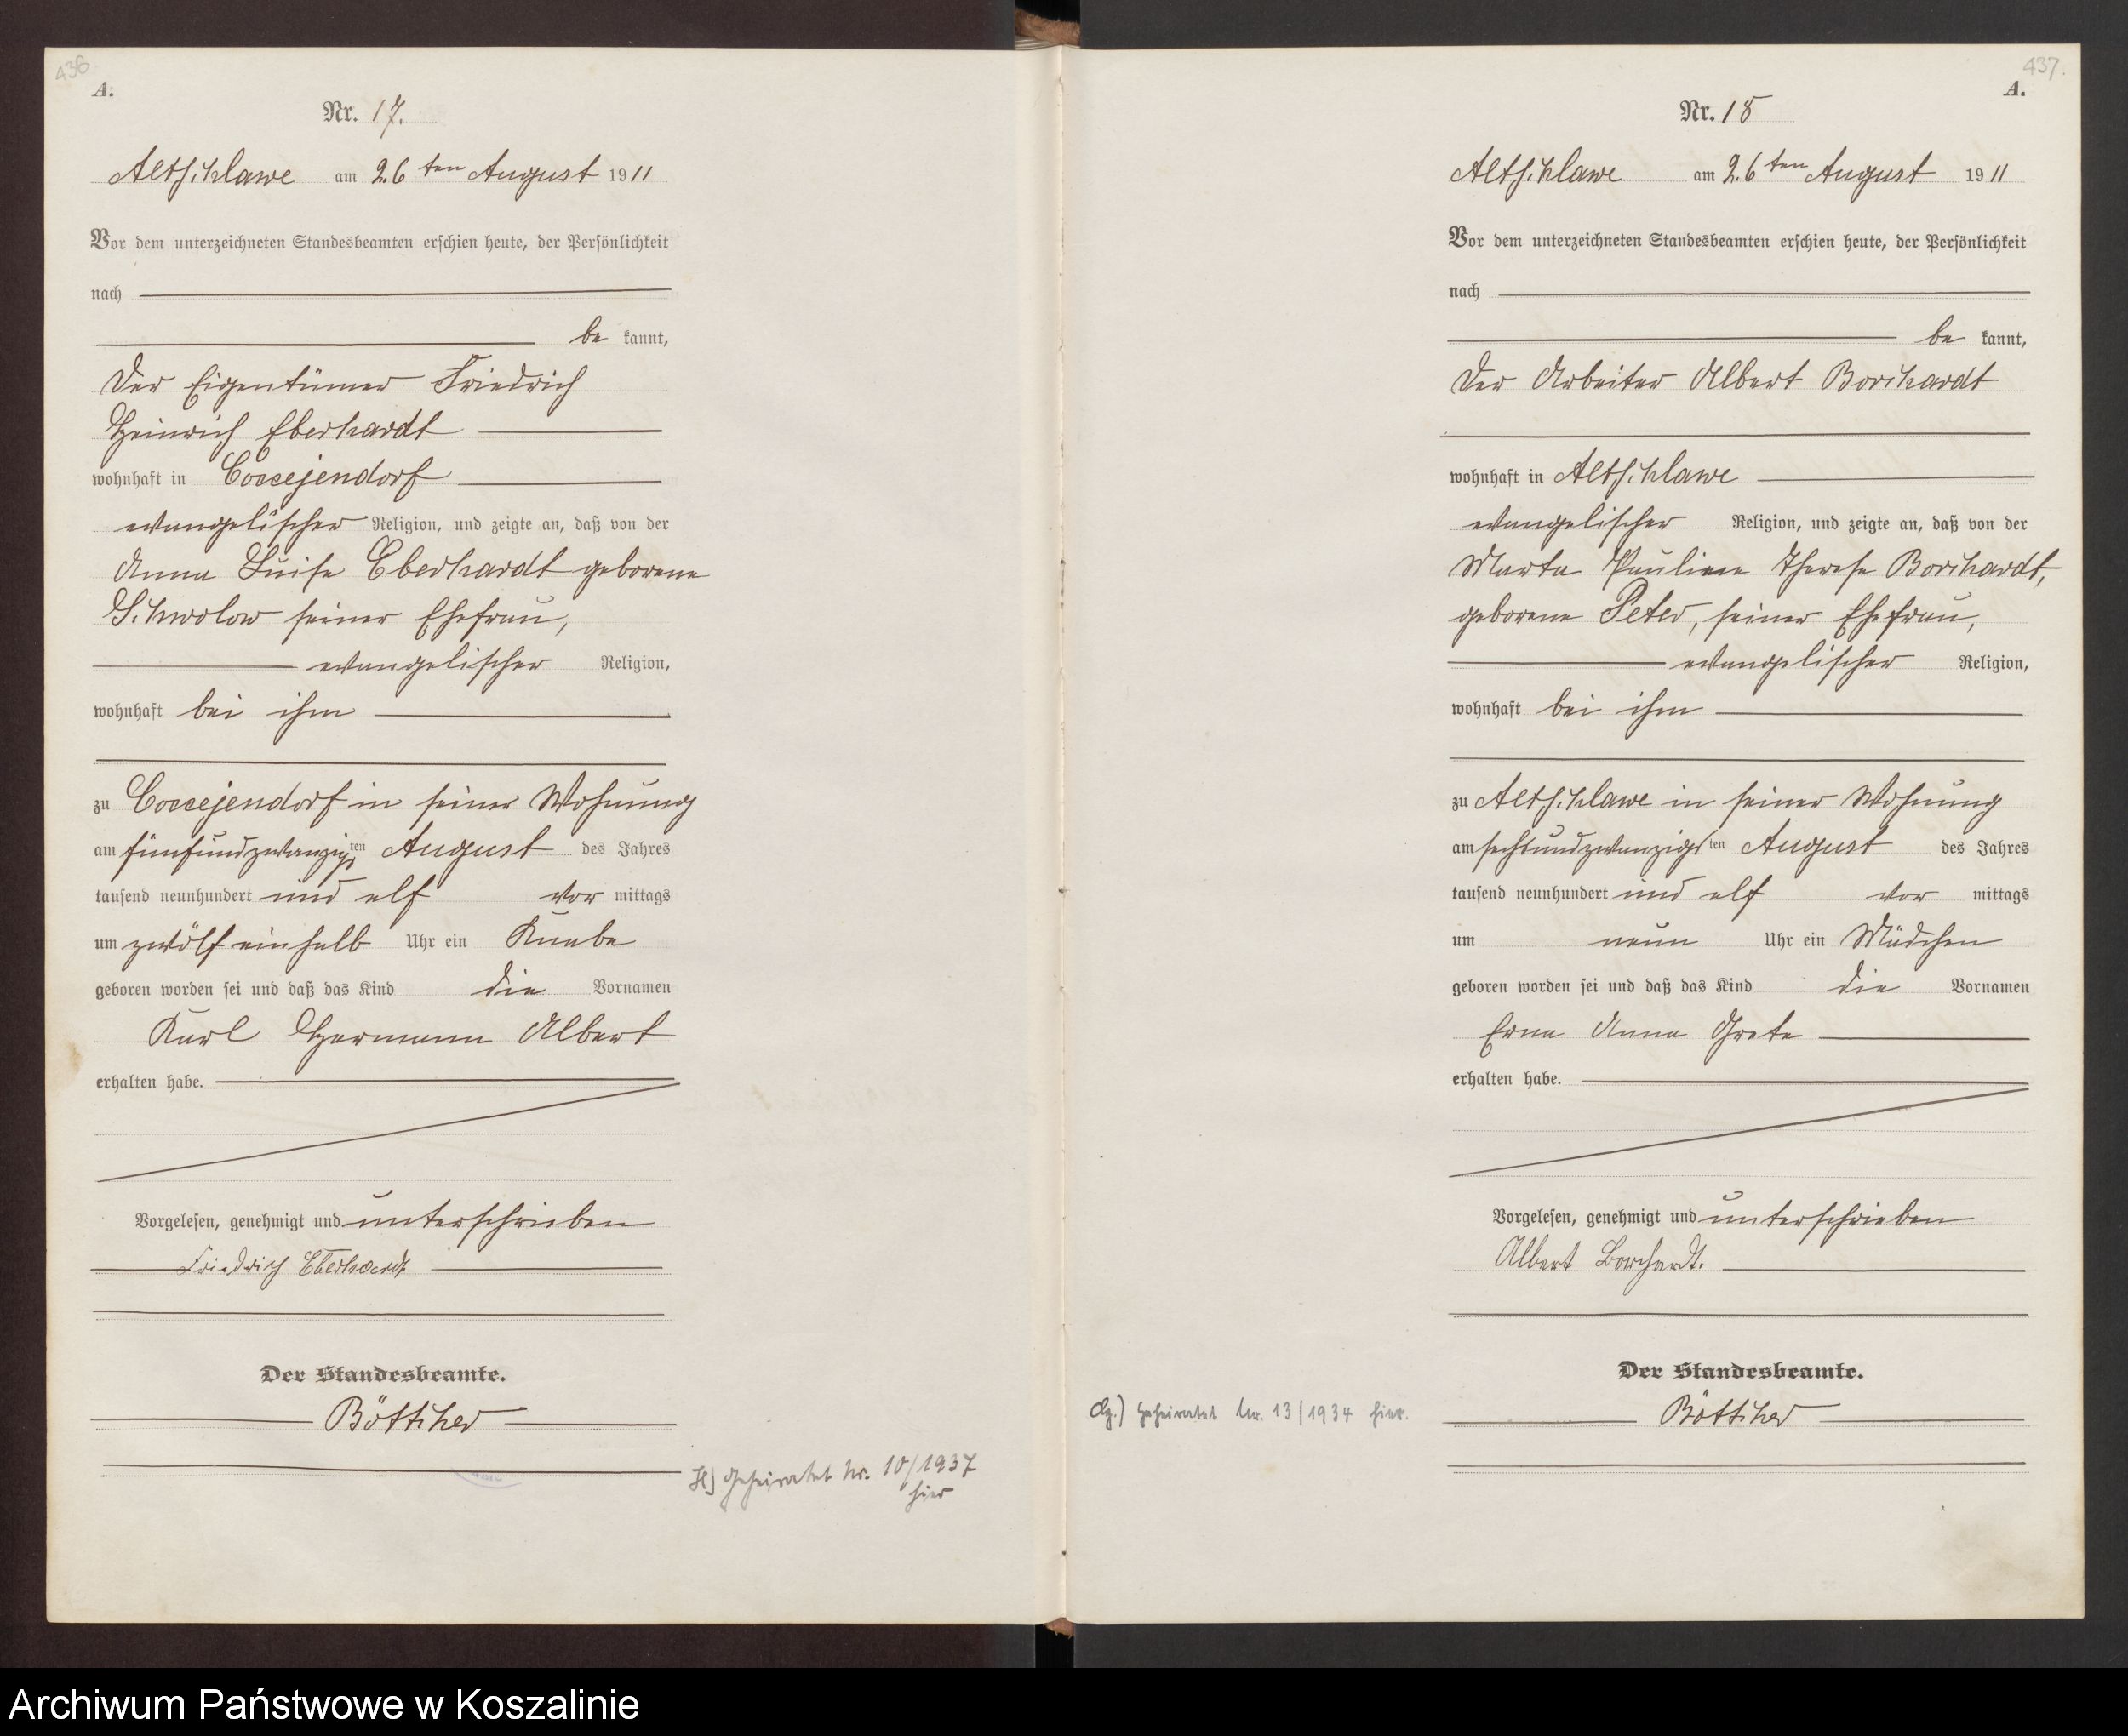 436
A.
Nr. 17.
Altschlawe am 26ten August 1911
Vor dem unterzeichneten Standesbeamten erschien heute, der Persönlichkeit
nach
be kannt,
Der Eigentümer Friedrich
Heinrich Eberhardt
wohnhaft in Coccejendorf
evangelischer Religion, und zeigte an, daß von der
Anna Luise Eberhardt geborene
Schwolow seiner Ehefrau,
evangelischer Religion,
wohnhaft bei ihm
zu Coccejendorf in seiner Wohnung
am fünfundzwanzigsten August des Jahres
tausend neunhundert und elf vor mittags
um zwölf einhalb Uhr ein Knabe
geboren worden sei und daß das Kind die Vornamen
Karl Hermann Albert
erhalten habe.
Vorgelesen, genehmigt und unterschrieben
Friedrich Eberhardt
Der Standesbeamte.
Böttcher
Geheiratet Nr. 10/1937
hier
437.
A.
Nr. 18
Altschlawe am 26ten August 1911
Vor dem unterzeichneten Standesbeamten erschien heute, der Persönlichkeit
nach
be kannt,
Der Arbeiter Albert Borchardt
wohnhaft in Altschlawe
evangelischer Religion, und zeigte an, daß von der
Marta Pauline Therese Borchardt,
geborene Peter, seiner Ehefrau,
evangelischer Religion,
wohnhaft bei ihm
zu Altschlawe in seiner Wohnung
am sechsundzwanzigsten August des Jahres
tausend neunhundert und elf vor mittags
um neun Uhr ein Mädchen
geboren worden sei und daß das Kind die Vornamen
Erna Anna Grete
erhalten habe.
Vorgelesen, genehmigt und unterschrieben
Albert Borchardt.
Der Standesbeamte.
Böttcher
Geheiratet Nr. 13/1934 hier.
Archiwum Państwowe w Koszalinie